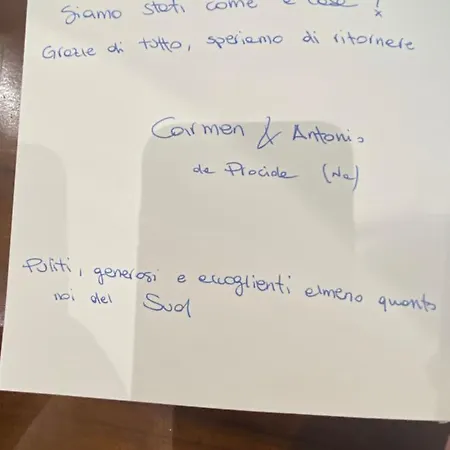 Siamo stati come a casa!
Grazie di tutto, speriamo di ritornare
Carmen & Antonio
da Procida (Na)
Puliti, generosi e accoglienti almeno quanto
noi del Sud